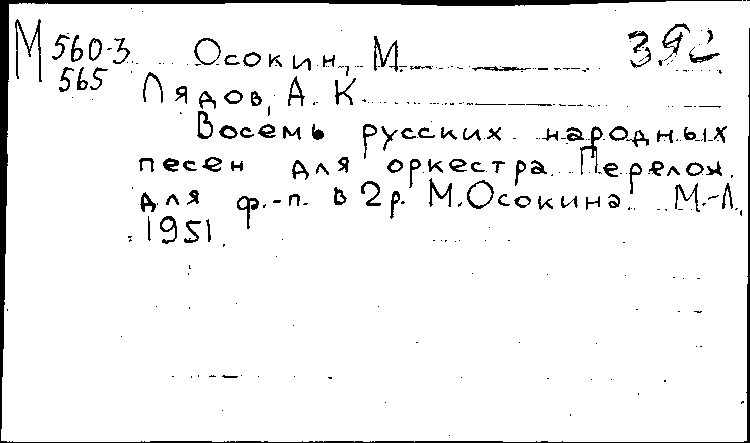 М 560-3 Осокин, М.
565
Лядов, А. К.
Восемь русских народных
песен для оркестра. Перелож.
для ф.-п. в 2 р. М. Осокина. М.-Л.,
1951.